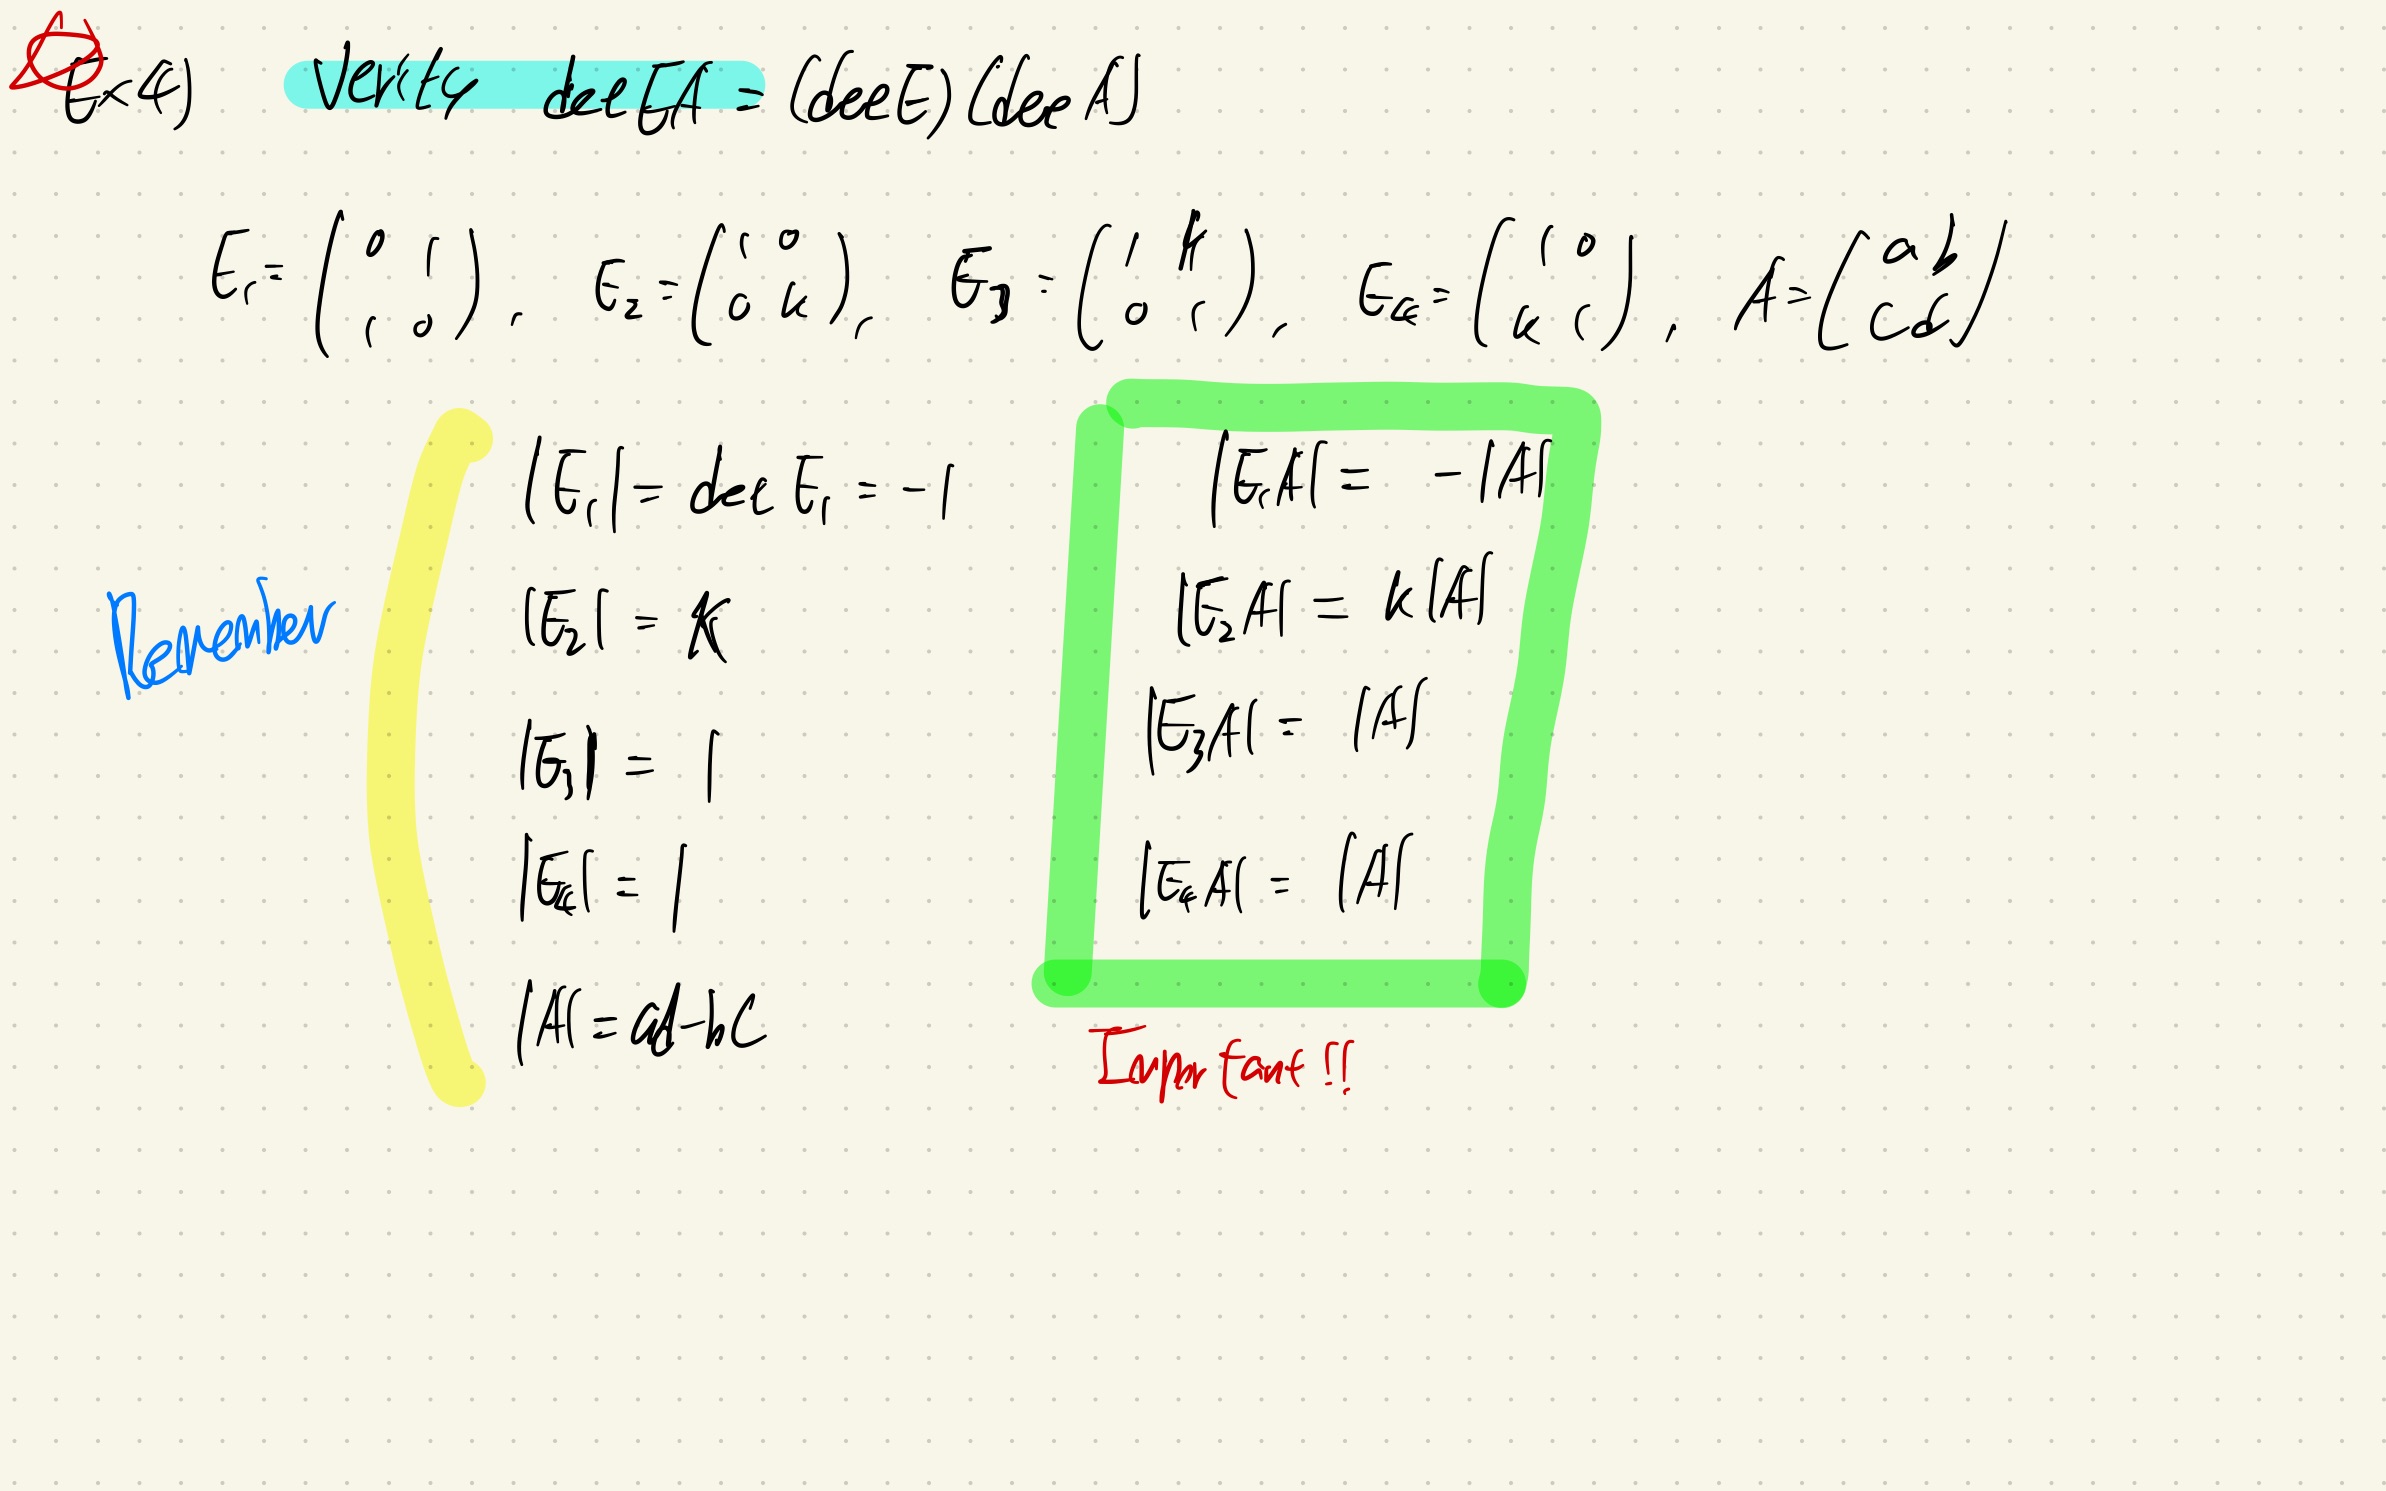 Ex 4) Verify det EA = (det E) (det A)
E₁ = (0 1; 1 0), E₂ = (1 0; 0 k), E₃ = (1 k; 0 1), E₄ = (1 0; k 1), A = (a b; c d)
|E₁| = det E₁ = -1
|E₂| = k
|E₃| = 1
|E₄| = 1
|A| = ad-bc
Remember
|E₁A| = -|A|
|E₂A| = k|A|
|E₃A| = |A|
|E₄A| = |A|
Important!!